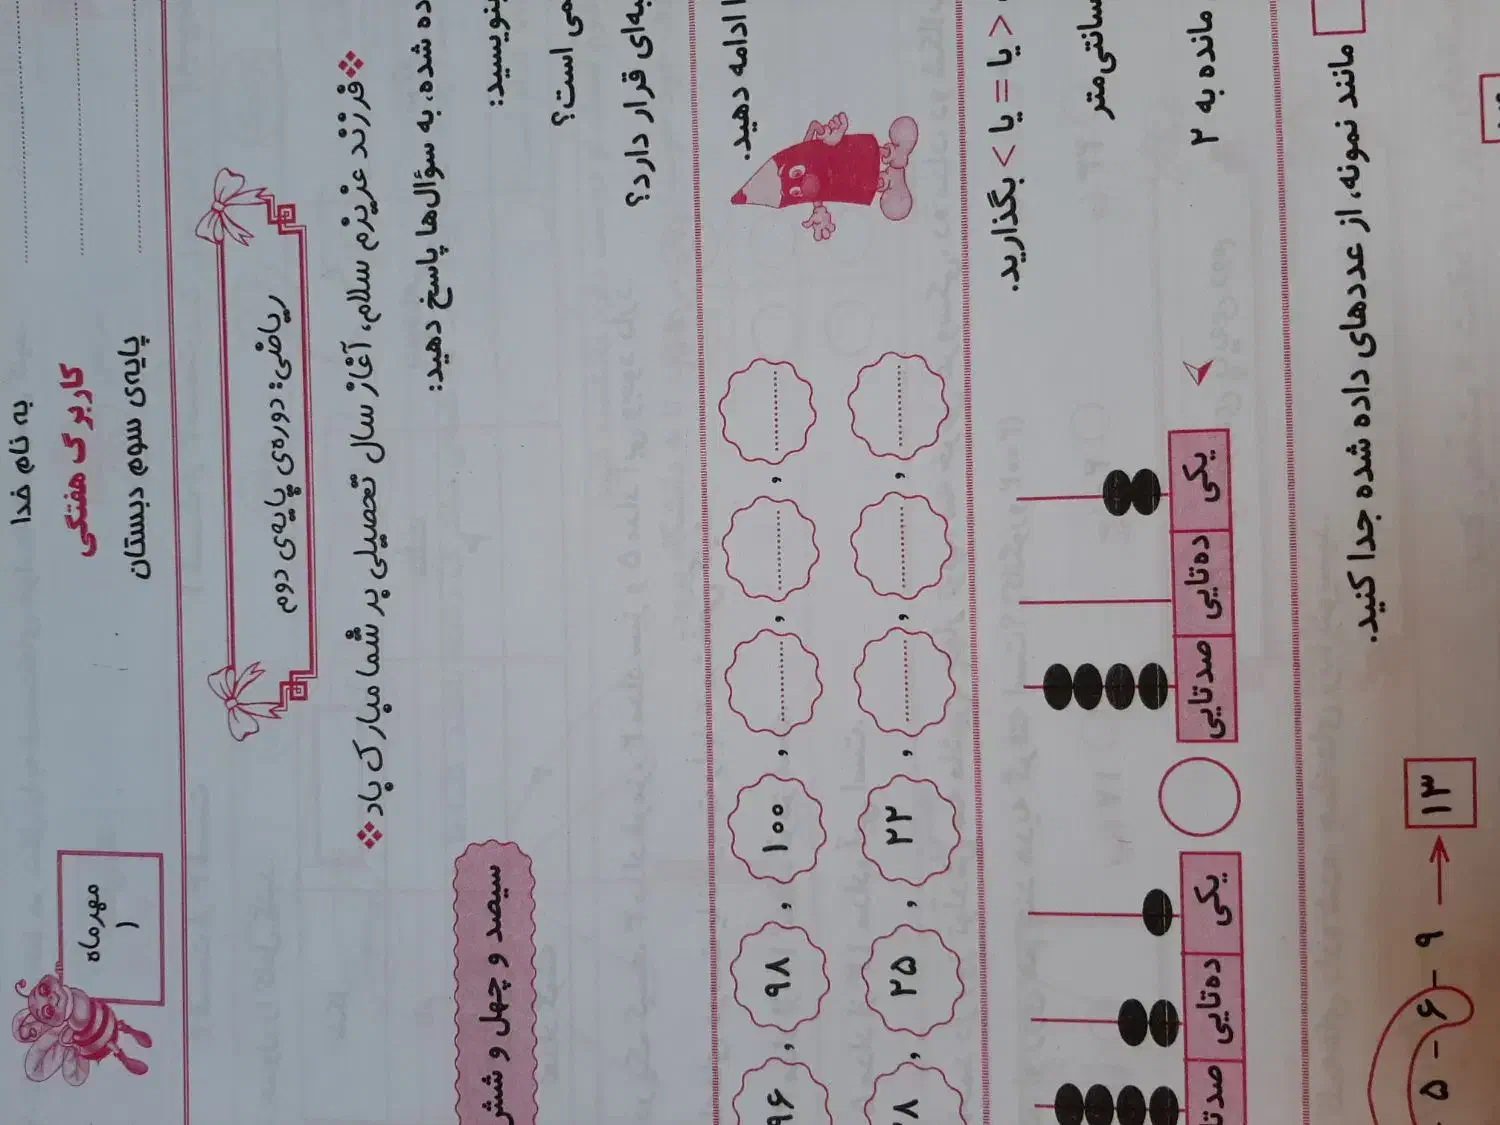 به نام خدا
کاربرگ هفتگی
پایه‌ی سوم دبستان
مهرماه
۱
ریاضی: دوره‌ی پایه‌ی دوم
❖فرزند عزیزم سلام، آغاز سال تحصیلی بر شما مبارک باد❖
شده، به سؤال‌ها پاسخ دهید:
بنویسید:
سیصد و چهل و شش
است؟
قرار دارد؟
ادامه دهید.
۹۶ , ۹۸ , ۱۰۰ , ........ , ........ , ........
۲۵ , ۲۲ , ........ , ........ , ........
> یا = یا < بگذارید.
سانتی‌متر
مانده به ۲
یکی ده‌تایی صدتایی
یکی ده‌تایی
مانند نمونه، از عددهای داده شده جدا کنید.
۵ - ۶ - ۹ → ۱۳